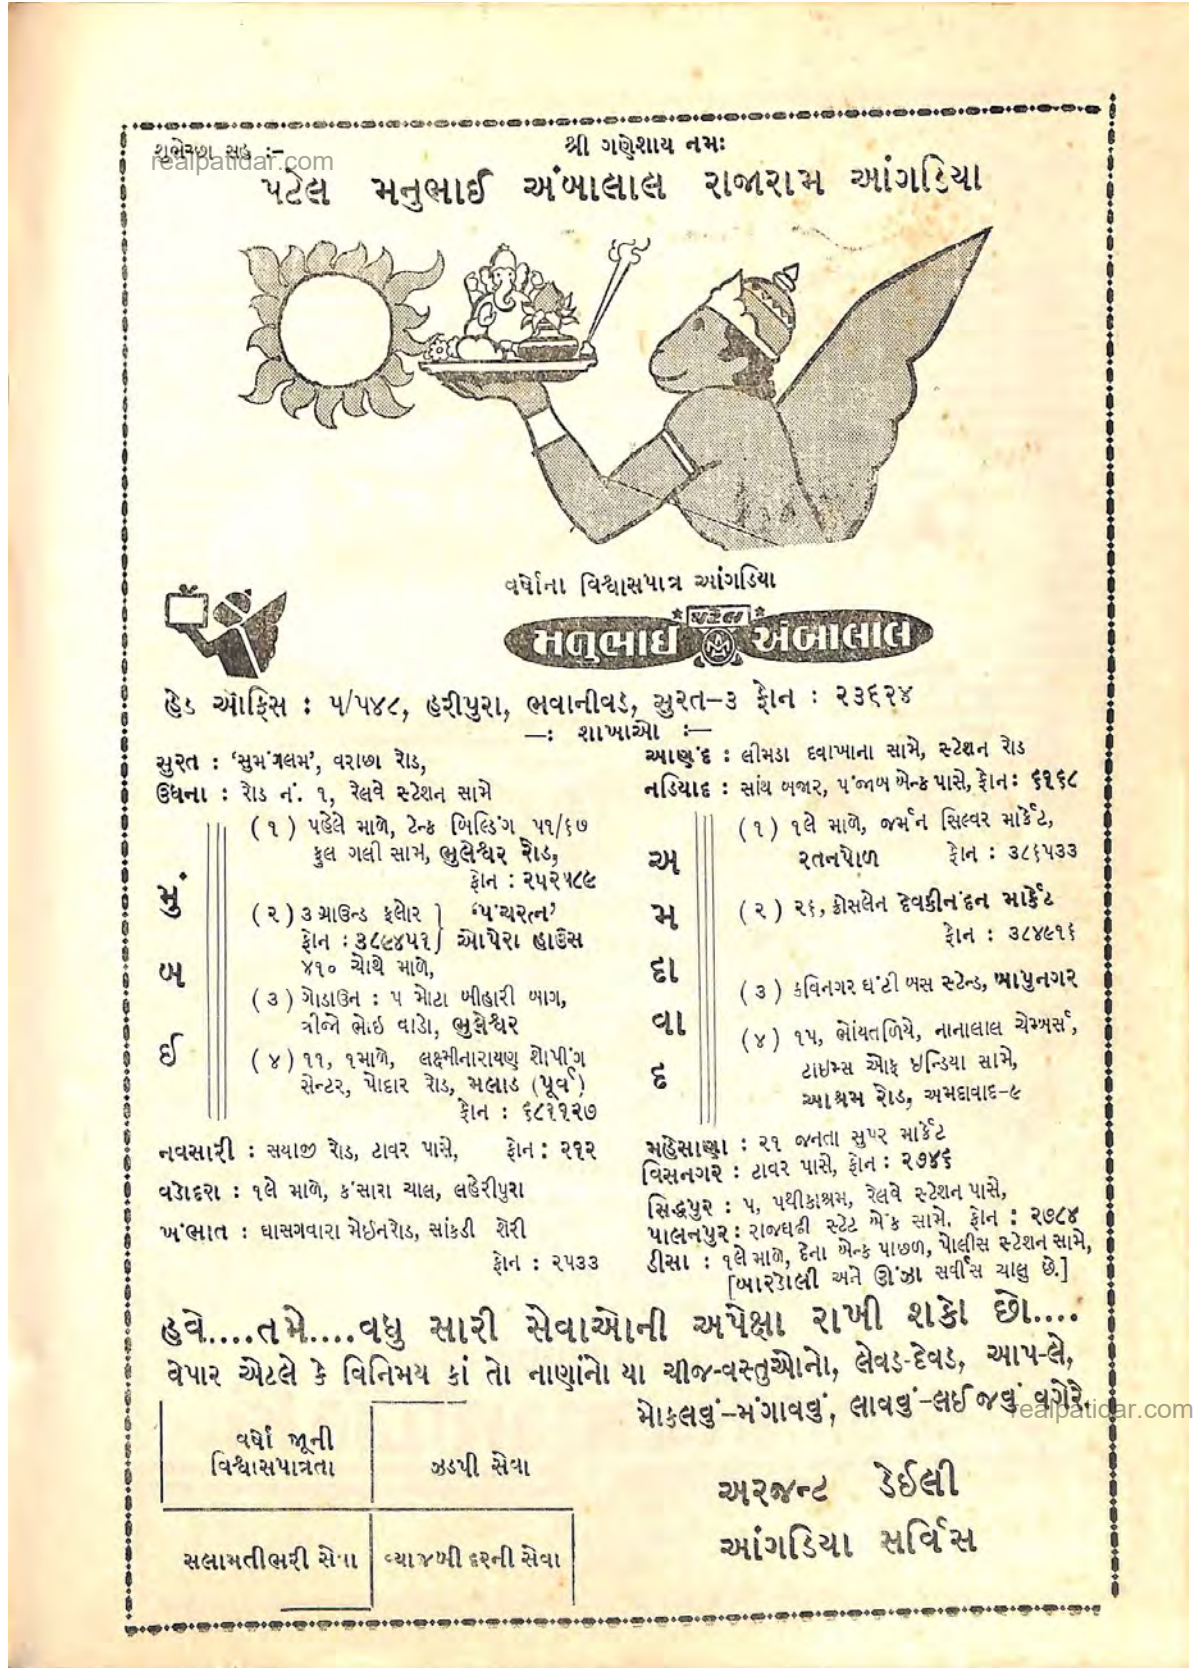 શુભેચ્છા સહ :–
realpatidar.com
શ્રી ગણેશાય નમઃ
પટેલ મનુભાઈ અંબાલાલ રાજારામ આંગડિયા
વર્ષોના વિશ્વાસપાત્ર આંગડિયા
પટેલ
મનુભાઈ અંબાલાલ
હેડ ઑફિસ : ૫/૫૪૮, હરીપુરા, ભવાનીવડ, સુરત–૩ ફોન : ૨૩૬૨૪
—: શાખાઓ :—
સુરત : ‘સુમંગલમ’, વરાછા રોડ,
ઉધના : રોડ નં. ૧, રેલવે સ્ટેશન સામે
મુંબઈ
(૧) પહેલે માળે, ટેન્ક બિલ્ડિંગ ૫૧/૬૭
ફુલ ગલી સામ, ભુલેશ્વર રોડ,
ફોન : ૨૫૨૫૮૯
(૨) ૩ ગ્રાઉન્ડ ફલોર ‘પંચરત્ન’
ફોન : ૩૮૯૪૫૧ ઓપેરા હાઉસ
૪૧૦ ચોથે માળે,
(૩) ગોડાઉન : ૫ મોટા બીહારી બાગ,
ત્રીજો ભોઇ વાડો, ભુલેશ્વર
(૪) ૧૧, ૧માળે, લક્ષ્મીનારાયણ શોપીંગ
સેન્ટર, પોદાર રોડ, મલાડ (પૂર્વ)
ફોન : ૬૮૧૧૨૭
નવસારી : સયાજી રોડ, ટાવર પાસે, ફોન : ૨૧૨
વડોદરા : ૧લે માળે, કંસારા ચાલ, લહેરીપુરા
ખંભાત : ઘાસગવારા મેઈનરોડ, સાંકડી શેરી
ફોન : ૨૫૩૩
આણંદ : લીમડા દવાખાના સામે, સ્ટેશન રોડ
નડિયાદ : સાંથ બજાર, પંજાબ બેન્ક પાસે, ફોન : ૬૧૬૮
અમદાવાદ
(૧) ૧લે માળે, જર્મન સિલ્વર માર્કેટ,
રતનપોળ ફોન : ૩૮૬૫૩૩
(૨) ૨૬, ક્રોસલેન દેવકીનંદન માર્કેટ
ફોન : ૩૮૪૯૧૬
(૩) કવિનગર ઘંટી બસ સ્ટેન્ડ, બાપુનગર
(૪) ૧૫, ભોંયતળિયે, નાનાલાલ ચેમ્બર્સ,
ટાઇમ્સ ઓફ ઇન્ડિયા સામે,
આશ્રમ રોડ, અમદાવાદ–૯
મહેસાણા : ૨૧ જનતા સુપર માર્કેટ
વિસનગર : ટાવર પાસે, ફોન : ૨૭૪૬
સિદ્ધપુર : ૫, પથીકાશ્રમ, રેલવે સ્ટેશન પાસે,
પાલનપુર : રાજઘઢી સ્ટેટ બેંક સામે. ફોન : ૨૭૮૪
ડીસા : ૧લે માળે, દેના બેન્ક પાછળ, પોલીસ સ્ટેશન સામે,
[બારડોલી અને ઊંઝા સર્વીસ ચાલુ છે.]
હવે....તમે....વધુ સારી સેવાઓની અપેક્ષા રાખી શકો છો....
વેપાર એટલે કે વિનિમય કાં તો નાણાંનો યા ચીજ-વસ્તુઓનો, લેવડ-દેવડ, આપ-લે,
મોકલવું–મંગાવવું, લાવવું–લઈ જવું વગેરે.
realpatidar.com
વર્ષો જૂની
વિશ્વાસપાત્રતા
ઝડપી સેવા
સલામતીભરી સેવા
વ્યાજબી દરની સેવા
અરજન્ટ ડેઈલી
આંગડિયા સર્વિસ